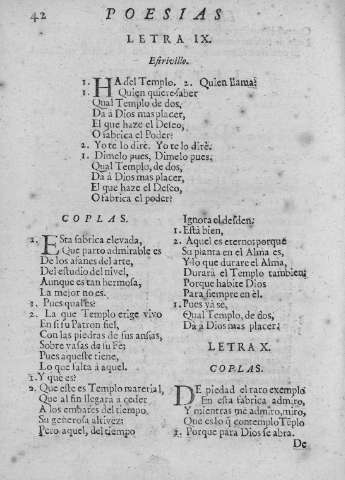 42 POESIAS
LETRA IX.
Estrivillo.
1. HA del Templo. 2. Quien llama?
1. Quien quiere saber
Qual Templo de dos,
Dà à Dios mas placer,
El que haze el Deseo,
O fabrica el Poder?
2. Yo te lo dirè. Yo te lo dirè.
1. Dimelo pues, Dimelo pues.
Qual Templo, de dos,
Dà à Dios mas placer,
El que haze el Deseo,
O fabrica el poder?
COPLAS.
2. ESta fabrica elevada,
Que parto admirable es
De los afanes del arte,
Del estudio del nivel,
Aunque es tan hermosa,
La mejor no es.
1. Pues qual es?
2. La que Templo erige vivo
En si su Patron fiel,
Con las piedras de sus ansias,
Sobre vasas de su Fè;
Pues aqueste tiene,
Lo que falta à aquel.
1. Y que es?
2. Que este es Templo material,
Que al fin llegarà à ceder
A los embates del tiempo,
Su generosa altivez:
Pero aquel, del tiempo
Ignora el desden.
1. Està bien,
2. Aquel es eterno; porque
Su planta en el Alma es,
Y lo que durare el Alma,
Durarà el Templo tambien;
Porque habite Dios
Para siempre en èl.
1. Pues yà sè,
Qual Templo, de dos,
Dà à Dios mas placer.
LETRA X.
COPLAS.
DE piedad el raro exemplo
En esta fabrica admiro,
Y mientras me admiro, miro,
Que es lo q̃ contemplo Tẽplo
1. Porque para Dios se abra.
De